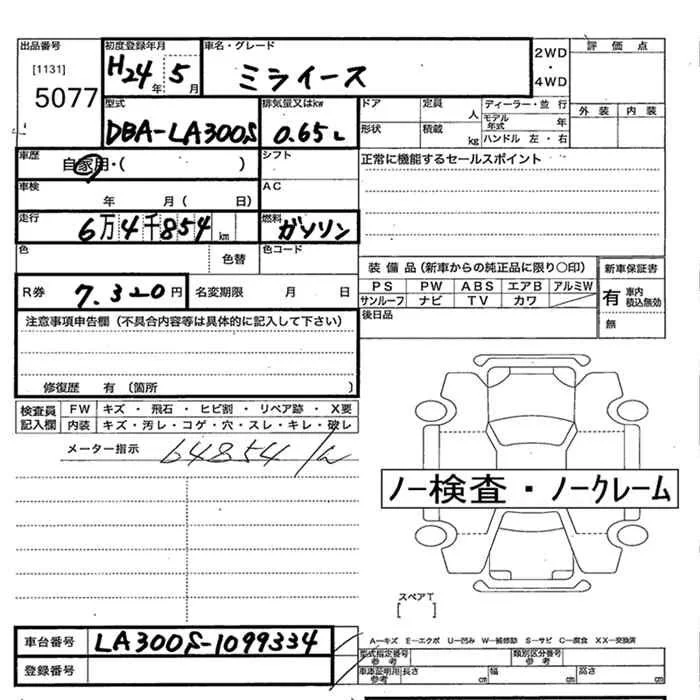 出品番号 初度登録年月 車名・グレード 2WD・4WD 評価点
[1131] 5077 H24年 5月 ミライース 外装 内装
型式 排気量又はkw ドア 定員 人 ディーラー・並行
DBA-LA300S 0.65L 形状 積載 kg モデル年式 年 ハンドル 左・右
車歴 自家用・( ) シフト 正常に機能するセールスポイント
車検 年 月( 日) AC
走行 6万4千854km 燃料 ガソリン
色 色替 色コード
装備品(新車からの純正品に限り○印) 新車保証書
R券 7.320円 名変期限 月 日 PS PW ABS エアB アルミW 有 車内積込無効
サンルーフ ナビ TV カワ
注意事項申告欄(不具合内容等は具体的に記入して下さい) 後日品 無
修復歴 有(箇所 )
検査員記入欄 FW キズ・飛石・ヒビ割・リペア跡・X要
内装 キズ・汚レ・コゲ・穴・スレ・キレ・破レ
メーター指示 64854
ノー検査・ノークレーム
スペアT
[ ]
車台番号 LA300S-1099334 A−キズ E−エクボ U−凹み W−補修跡 S−サビ C−腐食 XX−交換済
型式指定番号 参考 類別区分番号 参考
登録番号 車庫証明用 参考 長さ cm 幅 cm 高さ cm